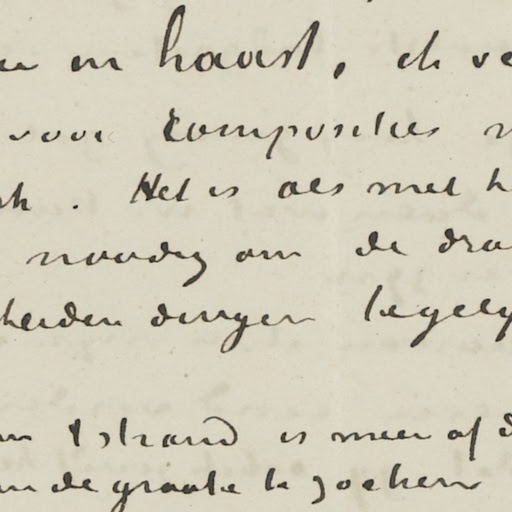 en haast, ik ve
voor composities
. Het is als met h
noodig om de dra
heiden dingen tegely
Strand is meer of d
de groote te zoeken